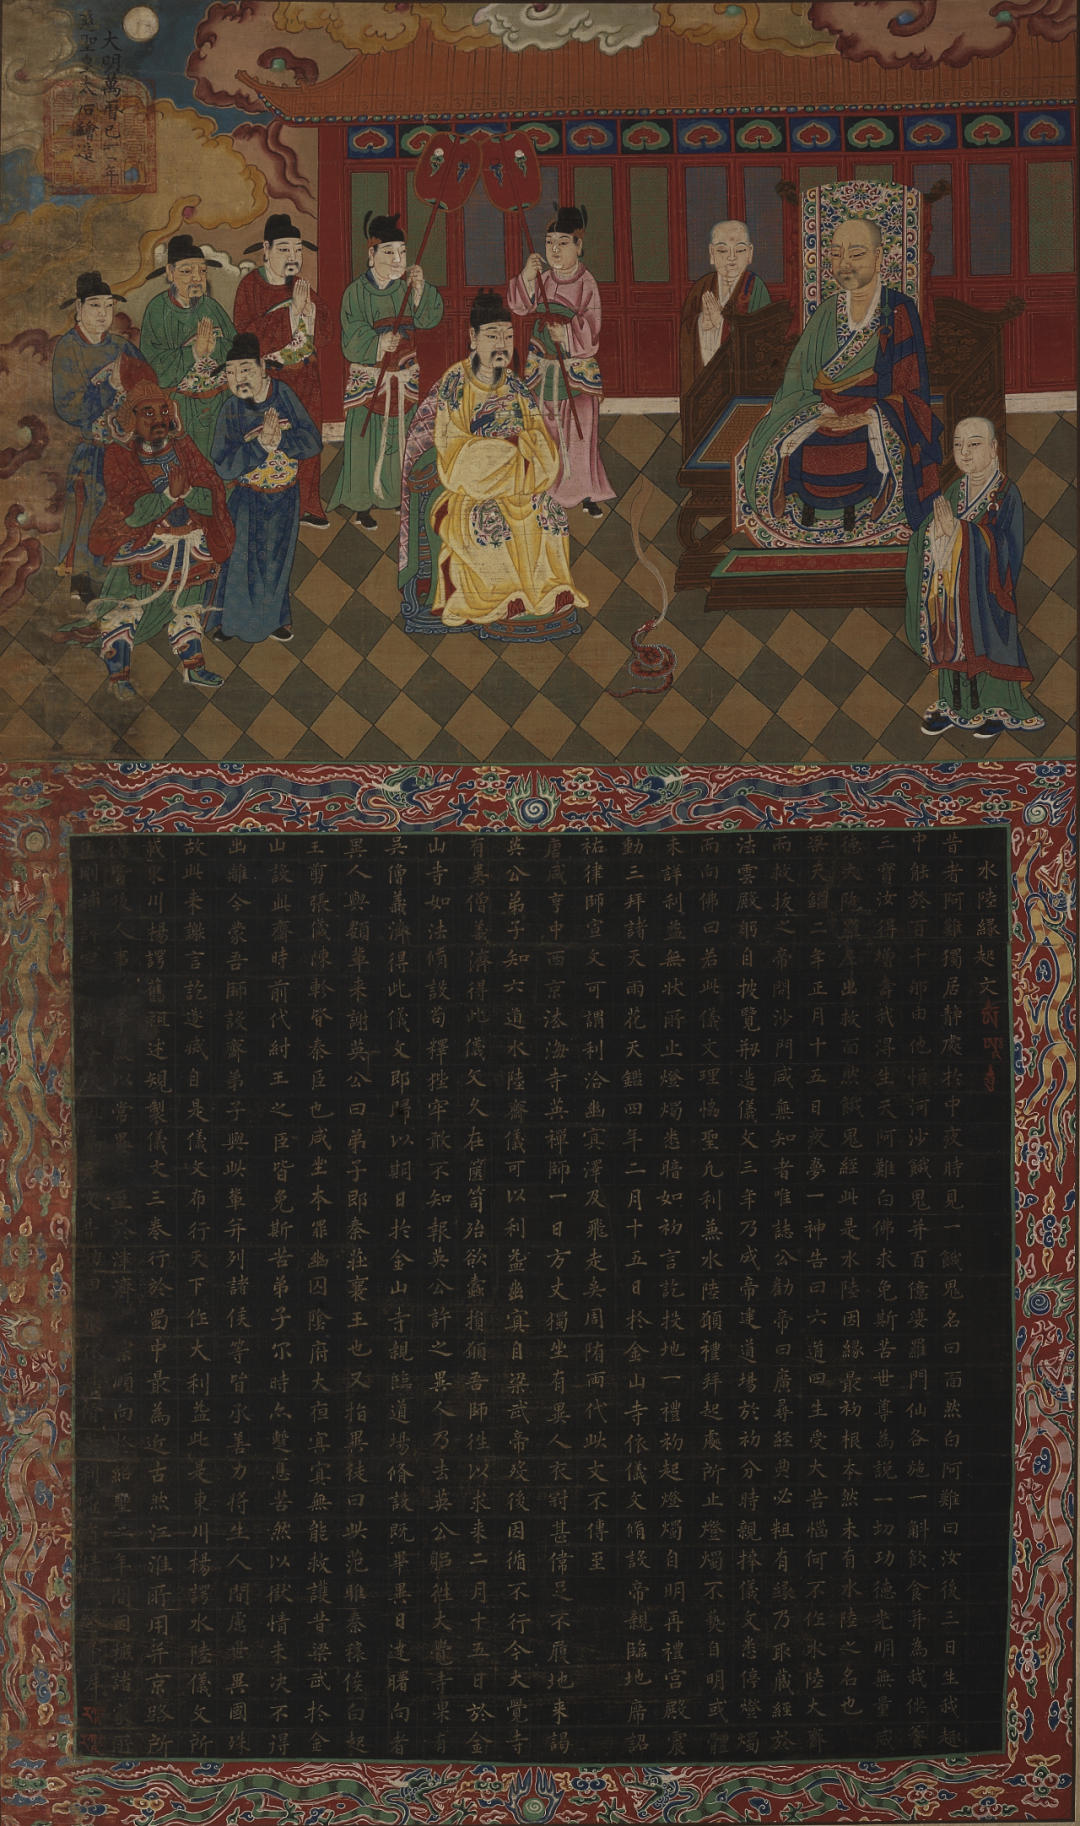 大明萬曆己酉年
慈聖皇太后繪造
水陸緣起文
昔者阿難獨居靜處於中夜時見一餓鬼名曰面然白阿難曰汝後三日生我趣
中能於百千那由他恒河沙餓鬼并百億婆羅門仙各施一斛飲食并為我供養
三寶汝得增壽我得生天阿難白佛求免斯苦世尊為說一切功德光明無量威
德大陀羅尼出救面然餓鬼經此是水陸因緣最初根本然未有水陸之名也
梁天鑑二年正月十五日夜夢一神告曰六道四生受大苦惱何不作水陸大齋
而救拔之帝問沙門咸無知者唯誌公勸帝曰廣尋經典必粗有緣乃取藏經於
法雲殿躬自披覽刱造儀文三年乃成帝建道場於初分時親捧儀文悉停燈燭
而向佛曰若此儀文理協聖凡利兼水陸願禮拜起處所止燈燭不爇自明或體
未詳利益無狀所止燈燭悉暗如初言訖投地一禮初起燈燭自明再禮宮殿震
動三拜諸天雨花天鑑四年二月十五日於金山寺依儀文修設帝親臨地席詔
祐律師宣文可謂利洽幽冥澤及飛走矣周隋兩代此文不傳至
唐咸亨中西京法海寺英禪師一日方丈獨坐有異人衣冠甚偉足不履地來謁
英公弟子知六道水陸齋儀可以利益幽冥自梁武帝歿後因循不行今大覺寺
有吳僧義濟得此儀文久在篋笥殆欲蠹損願吾師往以求來二月十五日於金
山寺如法修設苟釋狴牢敢不知報英公許之異人乃去英公躬往大覺寺果有
吳僧義濟得此儀文即歸以期日於金山寺親臨道場修設既畢異日逮曙向者
異人與顏輩來謝英公曰弟子即秦莊襄王也又指異徒曰此范雎秦穰侯白起
王翦張儀陳軫皆秦臣也咸坐本罪幽囚陰府大夜冥冥無能救護昔梁武於金
山設此齋時前代紂王之臣皆免斯苦弟子尔時亦暫息苦然以獄情未決不得
出離今蒙吾師設齋弟子與此輩并列諸侯等皆承善力將生人間慮世異國殊
故此來謝言訖遂滅自是儀文布行天下作大利益此是東川楊諤水陸儀文所
載東川楊諤舊祖述規製儀文三卷行於蜀中最為近古然江淮所用并京路所
後人事以常津濟宗順向於紹聖二年間國據諸家所
則補文